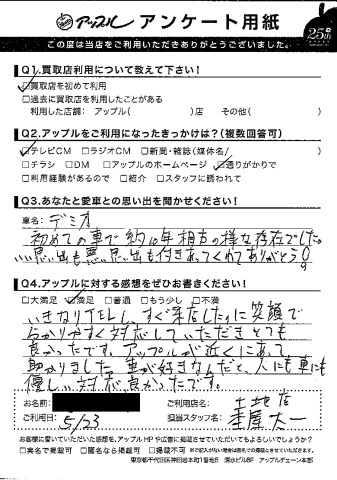 アップル アンケート用紙
25th
この度は当店をご利用いただきありがとうございました。
Q1.買取店利用について教えて下さい!
☑買取店を初めて利用
□過去に買取店を利用したことがある
利用した店舗: アップル( )店 その他( )
Q2.アップルをご利用になったきっかけは?(複数回答可)
☑テレビCM □ラジオCM □新聞・雑誌(媒体名/ )
□チラシ □DM □アップルのホームページ ☑通りがかりで
□利用経験があるので □紹介 □スタッフに誘われて
Q3.あなたと愛車との思い出を聞かせてください!
車名: デミオ
初めての車で約10年相方の様な存在でした。
いい思い出も悪い思い出も付きあってくれてありがとう!
Q4.アップルに対する感想をぜひお書きください!
□大満足 ☑満足 □普通 □もう少し □不満
いきなりTELし、すぐ来店したのに笑顔で
分かりやすく対応していただきとても
良かったです。アップルが近くにあって
助かりました。車が好きなんだと、人にも車にも
優しい対応良かったです。
お名前: ご利用店名:
ご利用日: 5/23 担当スタッフ名:
お客様に書いていただいた感想を、アップルHPや広告に掲載させていただいてもよろしいでしょうか?
□実名で掲載可 □匿名なら掲載可 □掲載不可 ※ご記入がない場合は匿名での掲載とさせていただきます。
東京都千代田区神田岩本町1番地5 清水ビル8F アップルチェーン本部